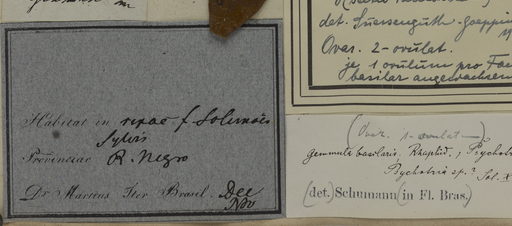 Habitat in ripae f. Solimoës
Sylvis
Provinciae R. Negro
Dr. Martius Iter Brasil. Dec
Nov
det. Suessenguth
Ovar. 2-ovulat.
je 1 ovulum pro Fach
basilar angewachsen
(Ovar. 1-ovulat—)
gemmula basilaris, Rhaphid., Psychotr
Psychotria sp.?
(det.) Schumann (in Fl. Bras.)